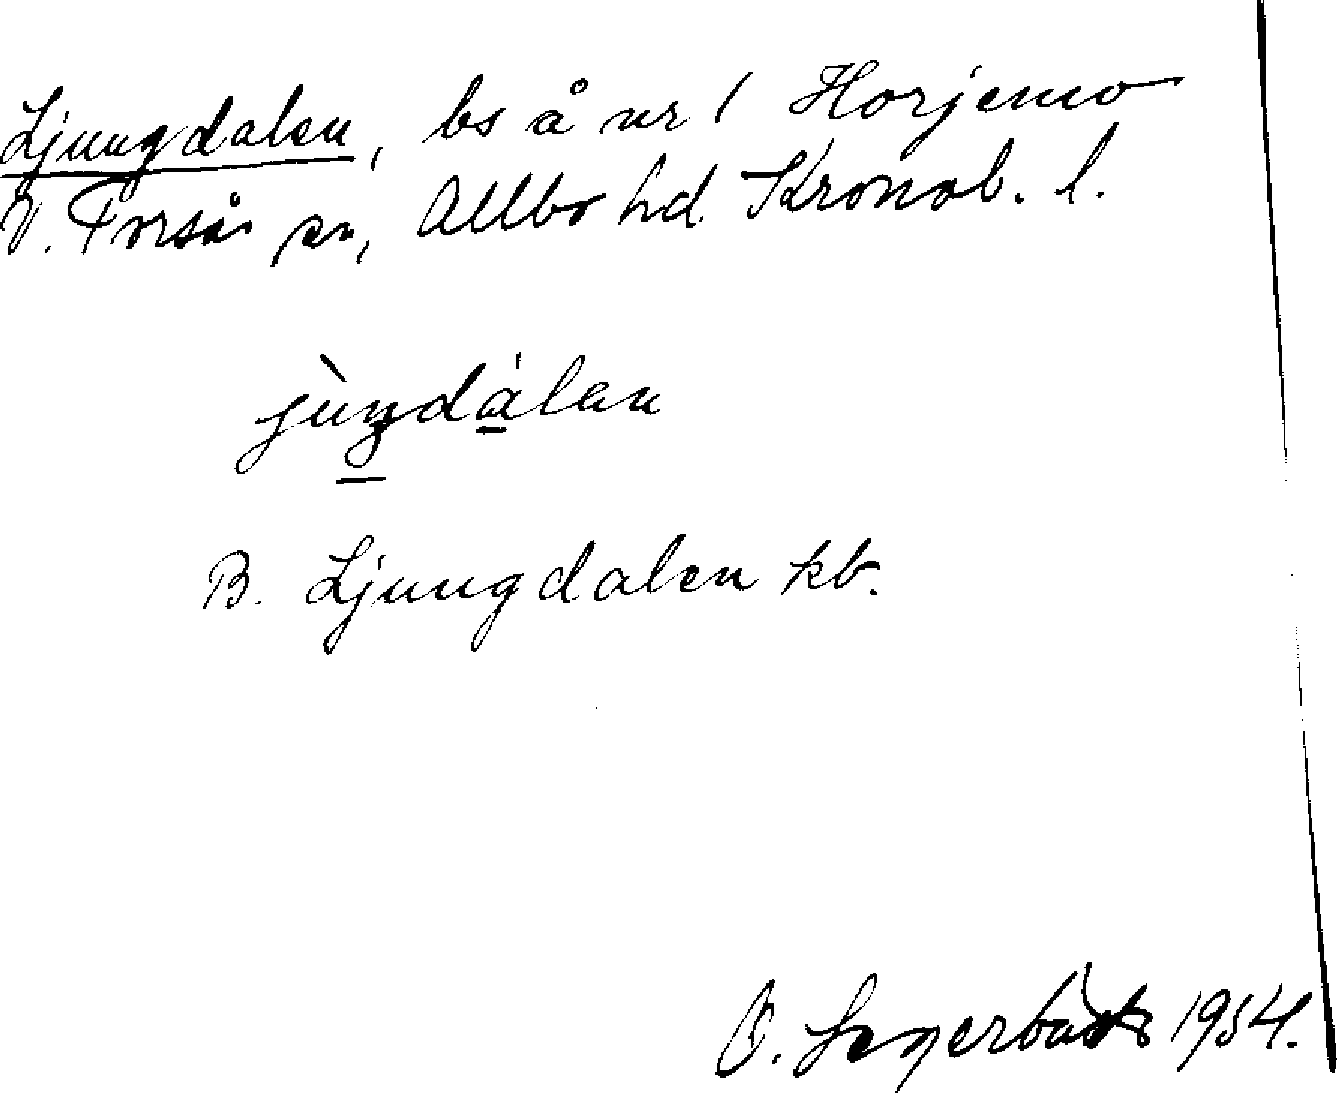 Ljungdalen, bs å nr 1 Horjemo
V. Torsås sn, Allbo hd. Kronob. l.
jùŋdálen
B. Ljungdalen kb.
1954.